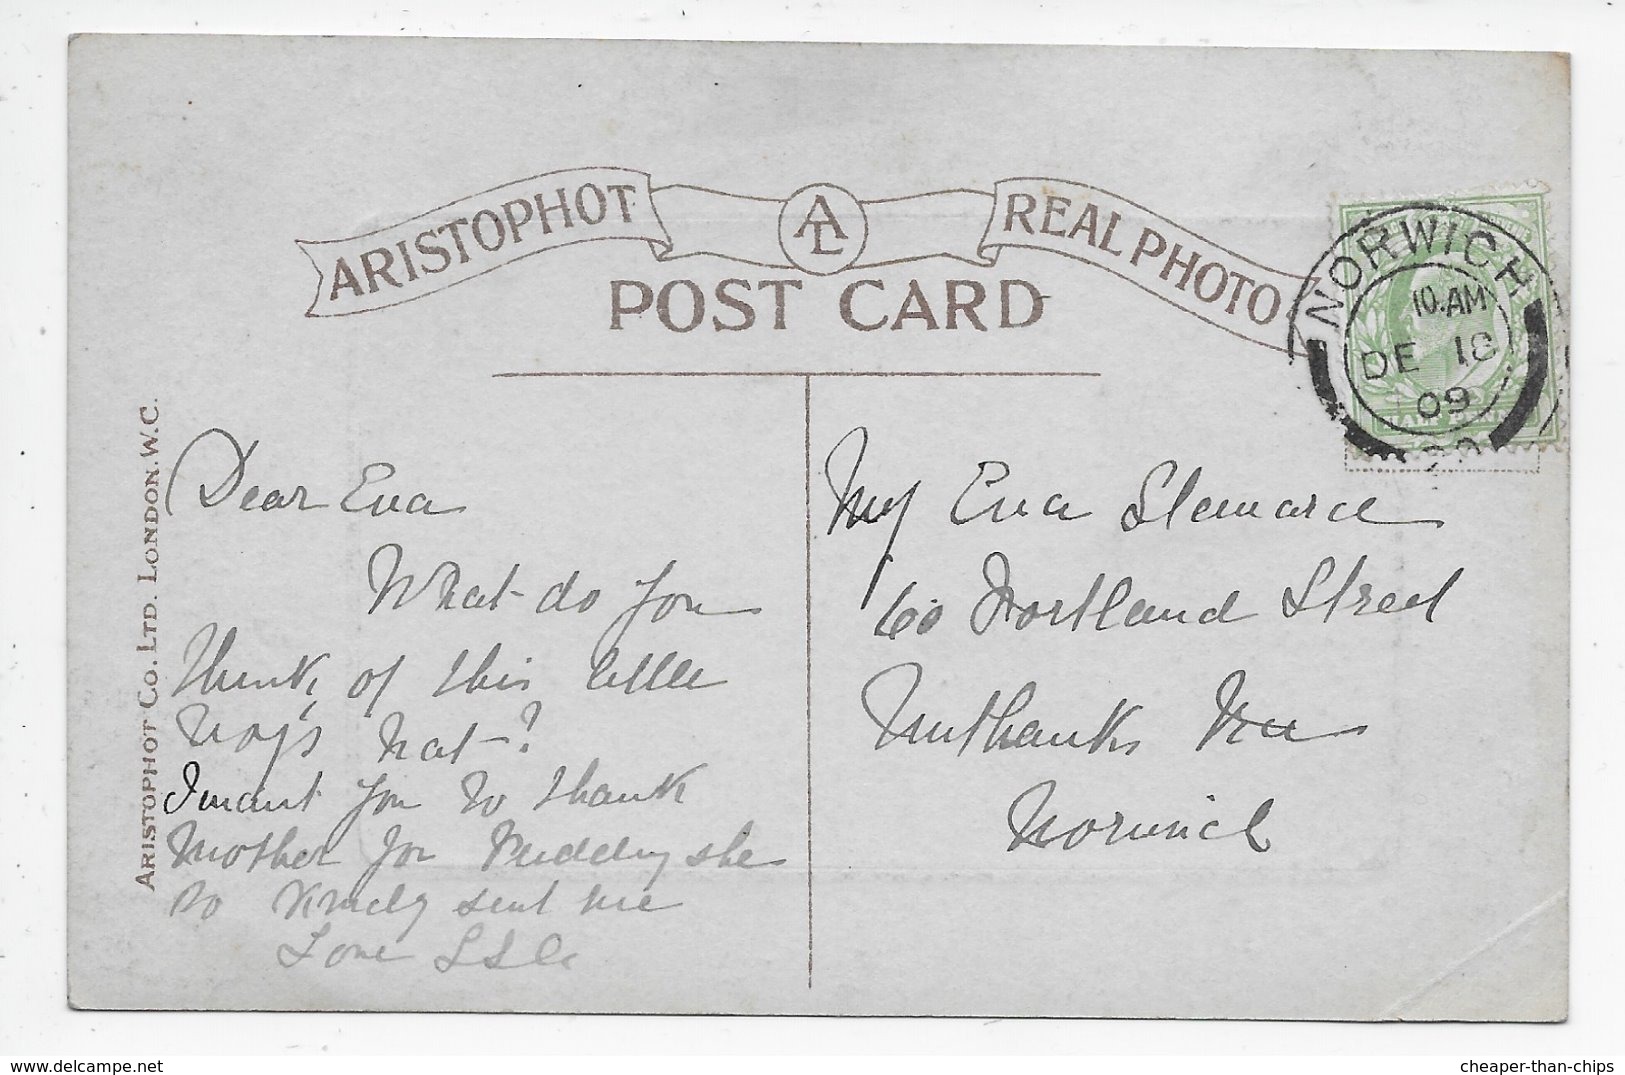 ARISTOPHOT
AL
REAL PHOTO
POST CARD
NORWICH
10.AM
DE 18
09
ARISTOPHOT CO. LTD. LONDON. W.C.
Dear Eva
What do you
think of this little
boy's hat?
I want you to thank
Mother for Pudding she
so kindly sent me
Love
My Eva
60 Portland Street
Unthanks
Norwich
cheaper-than-chips